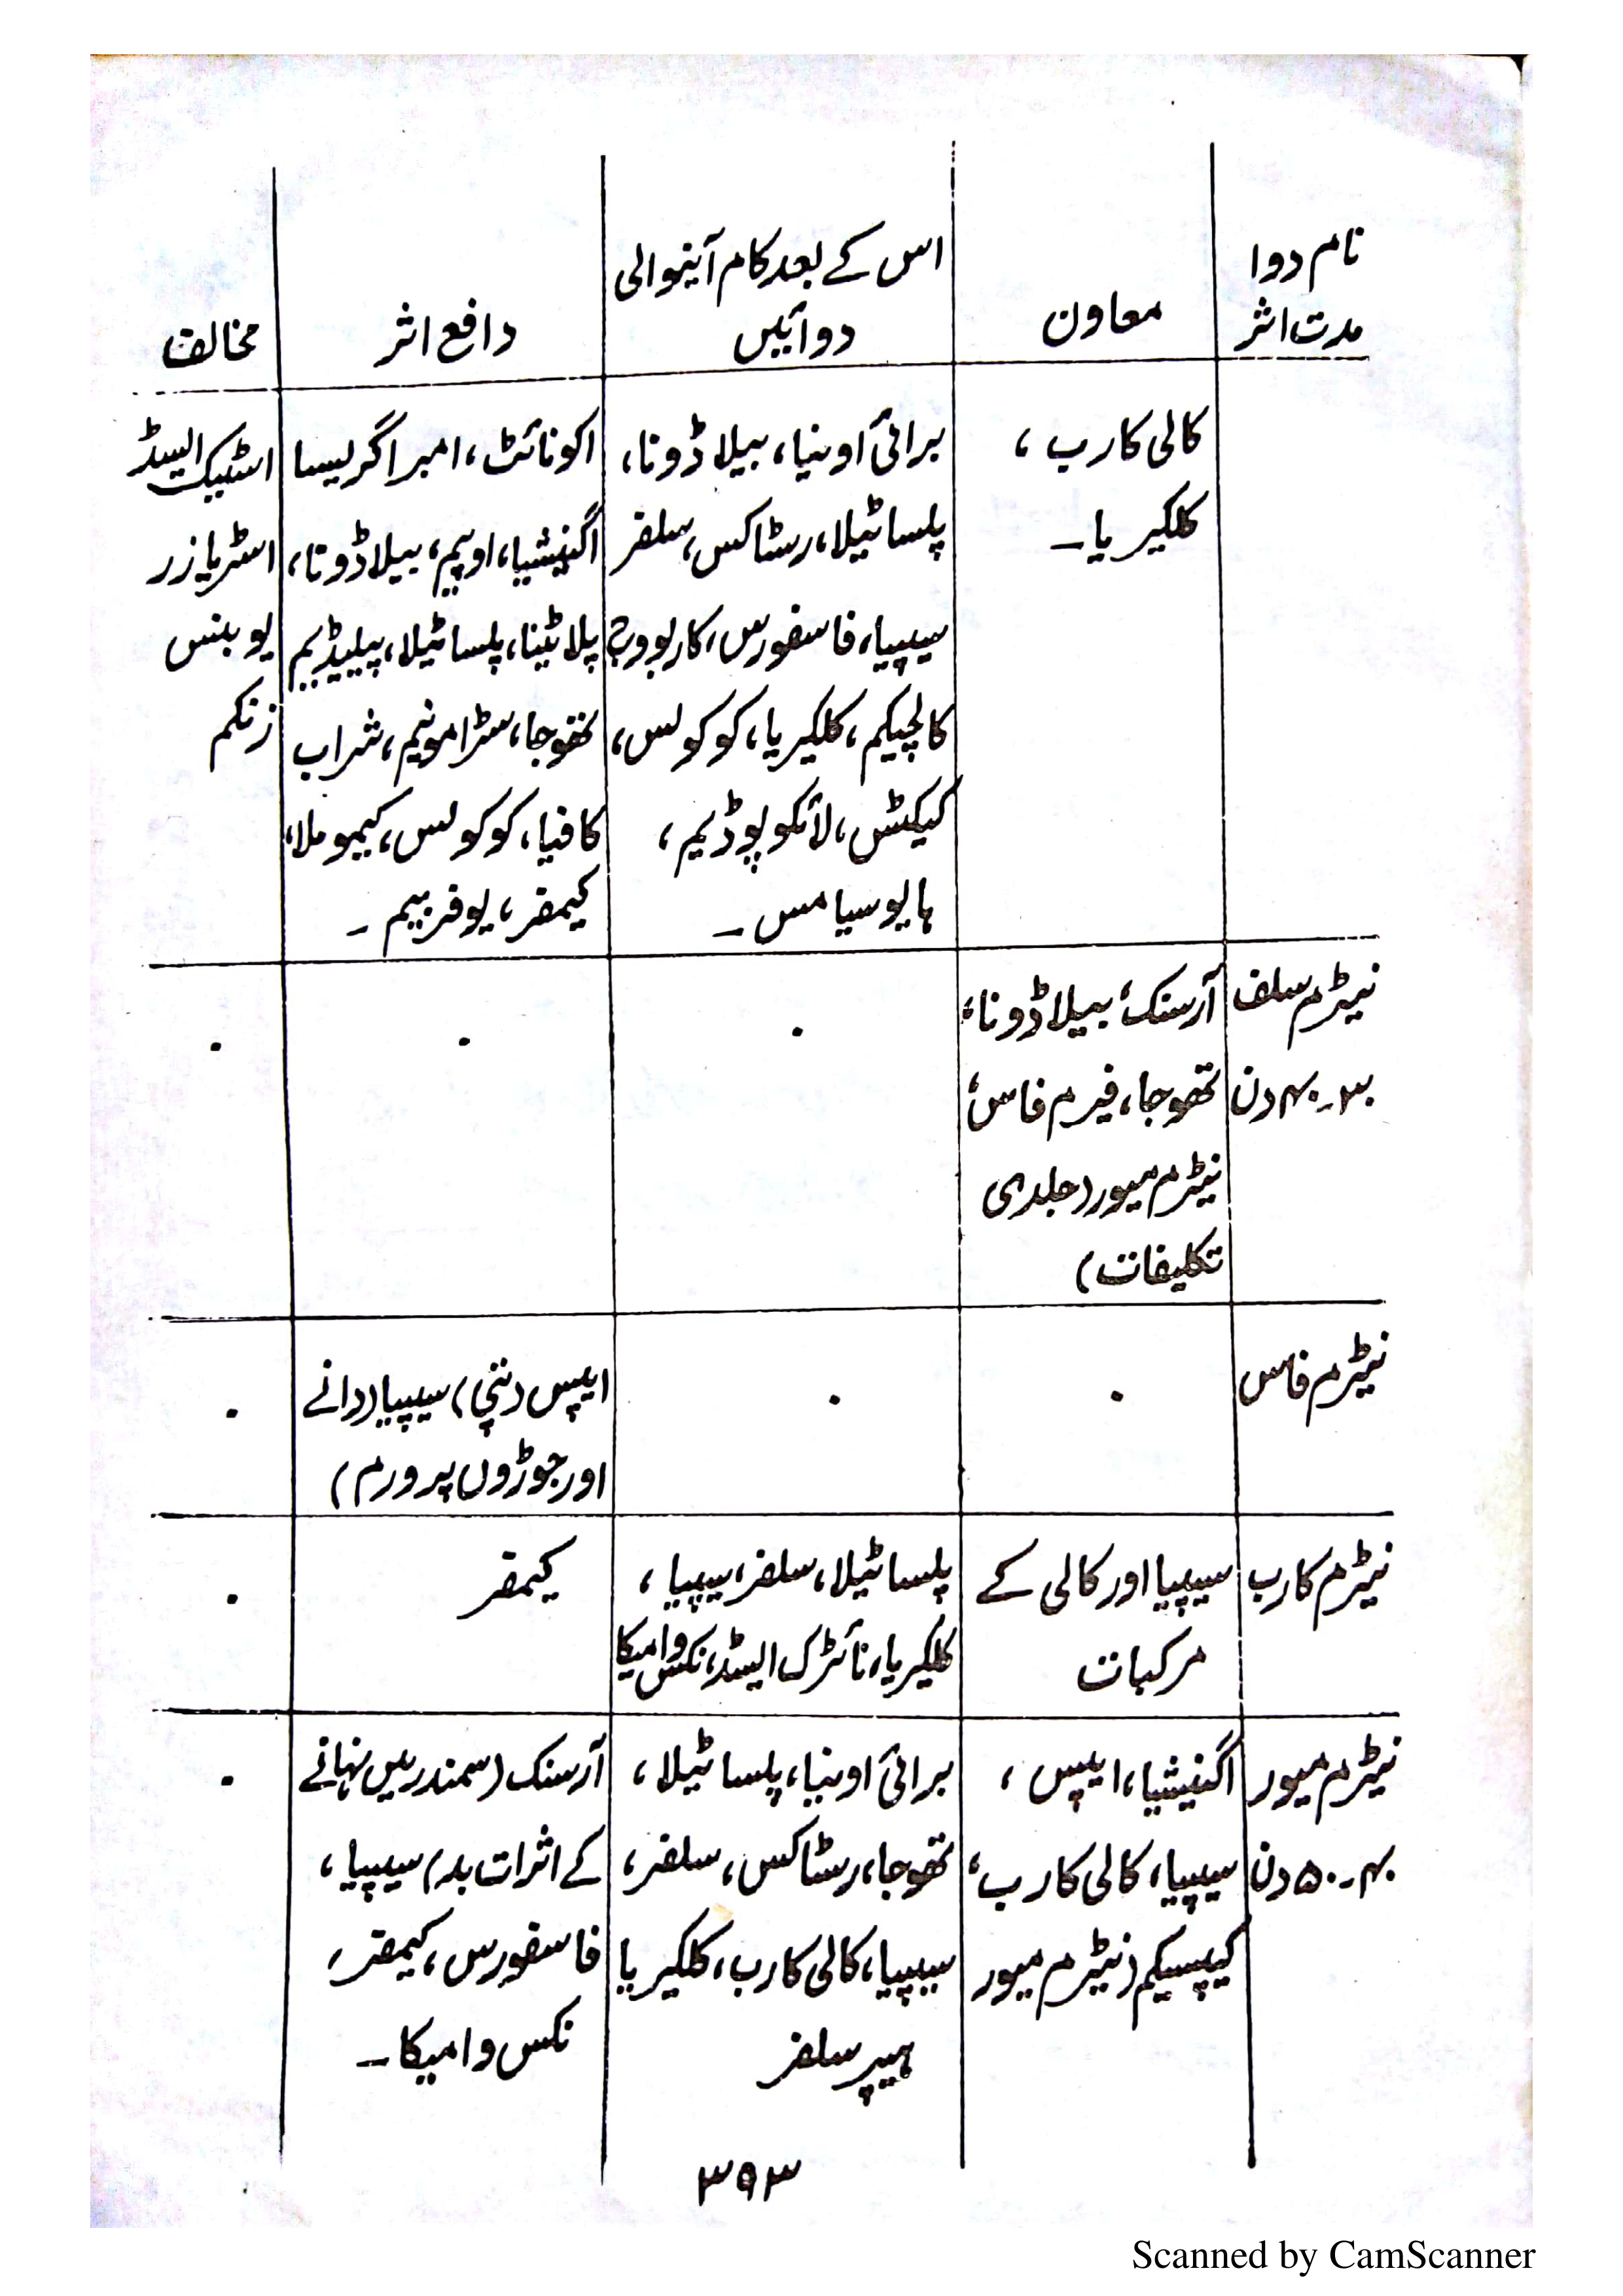 نام دوا
مدت اثر
معاون
اس کے بعد کام آنیوالی
دوائیں
دافع اثر
مخالف
کالی کارب ،
کلکیریا۔
برائی اونیا، بیلا ڈونا،
پلساٹیلا، رسٹاکس، سلفر
سیپیا، فاسفورس، کاربوویج
کالچیکم، کلکیریا، کوکولس،
کیکٹس، لائکوپوڈیم،
ہایوسیامس۔
اکونائٹ، امبرا گریسا
اگنیشیا، اوپیم، بیلا ڈونا،
پلاٹینا، پلساٹیلا، پیلیڈیم
تھوجا، سٹرامونیم، شراب
کافیا، کوکولس، کیمومِلا،
کیمفر، یوفربیم۔
اسٹیک ایسڈ
اسٹریازر
یوبنس
زنکم
نیٹرم سلف
۳۰۔۴۰ دن
آرسنک، بیلا ڈونا،
تھوجا، فیرم فاس،
نیٹرم میور (جلدی
تکلیفات)
۰
۰
۰
نیٹرم فاس
۰
۰
ایپس (پتی) سیپیا (دانے
اور جوڑوں پر ورم)
۰
نیٹرم کارب
سیپیا اور کالی کے
مرکبات
پلساٹیلا، سلفر، سیپیا،
کلکیریا، نائٹرک ایسڈ، نکس وامیکا
کیمفر
۰
نیٹرم میور
۴۰۔۵۰ دن
اگنیشیا، ایپس ،
سیپیا، کالی کارب،
کیپسیکم (نیٹرم میور
برائی اونیا، پلساٹیلا،
تھوجا، رسٹاکس، سلفر،
سیپیا، کالی کارب، کلکیریا
ہیپر سلفر
آرسنک (سمندر میں نہانے
کے اثرات بد) سیپیا،
فاسفورس، کیمفر،
نکس وامیکا۔
۰
۳۹۳
Scanned by CamScanner